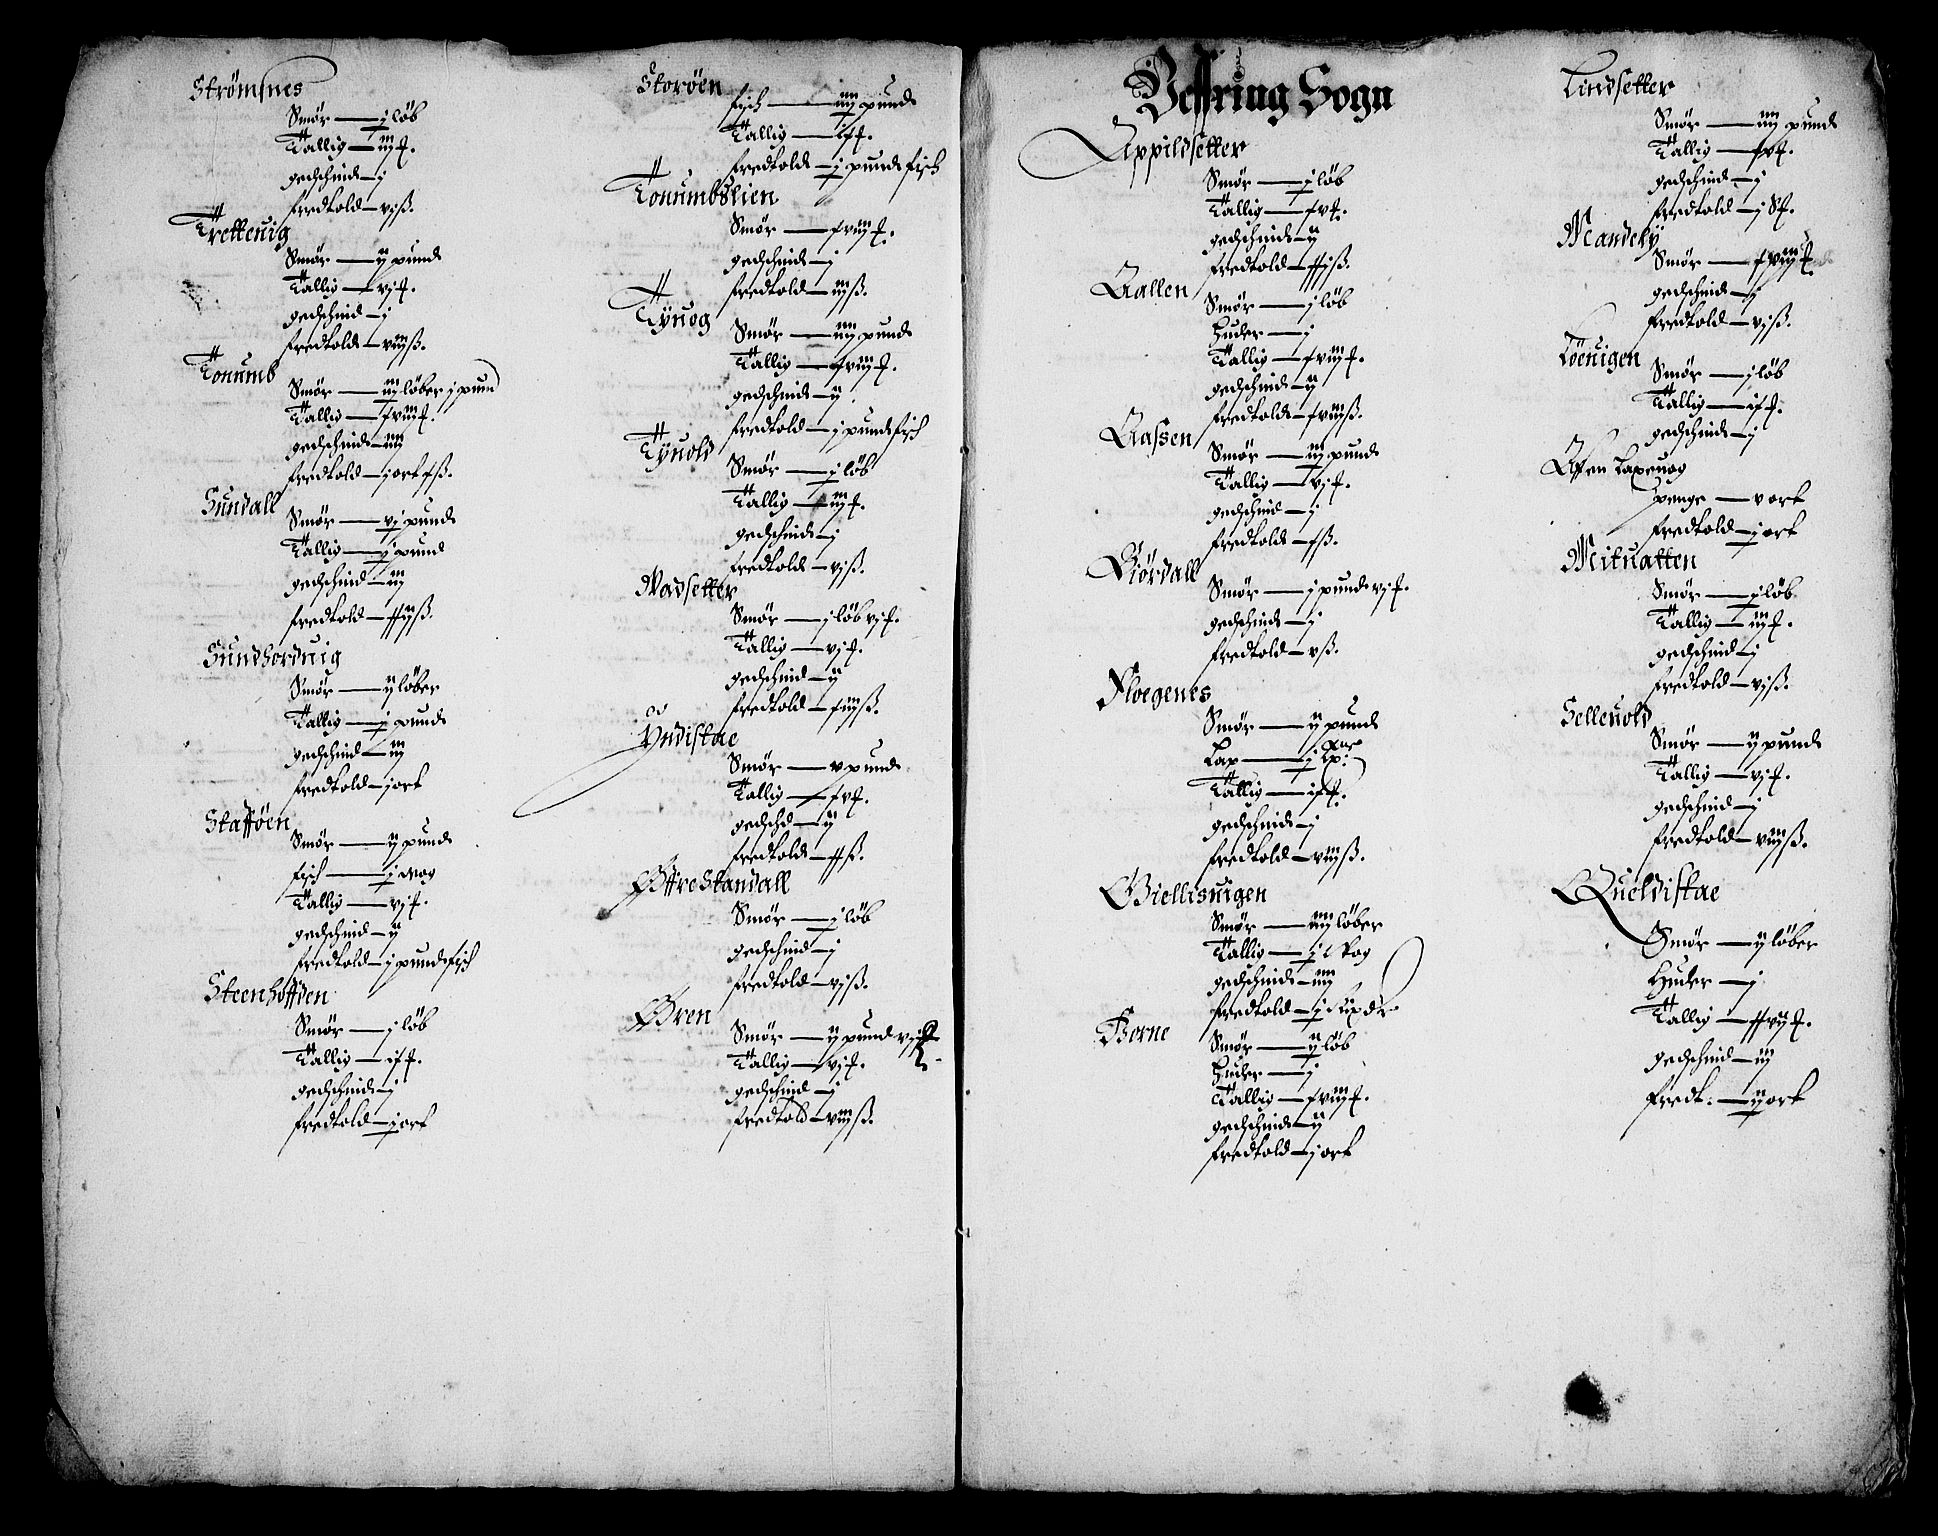 Strömsnes
Smör — j löb
Tallig — iij f.
gedschind — j
fredtold — vj ß.
Trettenig
Smör — ij pund
Tallig — vj f.
gedschind — j
fredtold — viij ß.
Tonumb
Smör — iij löber j pund
Tallig — xviij f.
gedschind — iiij
fredtold — j ort x ß.
Sundall
Smör — vj pund
Tallig — j pund
gedschind — iij
fredtold — xxij ß.
Sundhorduig
Smör — ij löber
Tallig — j pund
gedschind — iij
fredtold — j ort
Stafföen
Smör — ij pund
fisch — j wog
Tallig — vj f.
gedschind — ij
fredtold — j pund fisch
Steenhoffden
Smör — j löb
Tallig — ix f.
gedschind — j
fredtold — j ort
Storöen
fisch — iiij pund
Tallig — ix f.
fredtold — j pund fisch
Tonumbslien
Smör — xviij f.
gedschind — j
fredtold — iiij ß.
Tÿuog
Smör — iiij pund
Tallig — xviij f.
gedschind — ij
fredtold — j pund fisch
Tÿuold
Smör — j löb
Tallig — iij f.
gedschind — j
fredtold — vj ß.
Wadsetter
Smör — j löb vj f.
Tallig — vj f.
gedschind — ij
fredtold — xiij ß.
Yndistae
Smör — v pund
Tallig — xv f.
gedschd — ij
fredtold — xx ß.
Øffre Standall
Smör — j löb
gedschind — j
fredtold — vj ß.
Øren
Smör — ij pund vj f.
Tallig — vj f.
gedschind — j
fredtold — viij ß.
Veffring Sogn
Appildsetter
Smör — j löb
Tallig — xv f.
gedschind — ij
fredtold — xxj ß.
Aallen
Smör — j löb
Huder — j
Tallig — xviij f.
gedschind — ij
fredtold — xviij ß.
Aassen
Smör — iij pund
Tallig — vj f.
gedschind — j
fredtold — x ß.
Biördall
Smör — j pund vj f.
gedschind — j
fredtold — v ß.
Floegenes
Smör — ij pund
Lax — j
Tallig — ix f.
gedschind — j
fredtold — viij ß.
Giellisuigen
Smör — iiij löber
Tallig — j wog
gedschind — iiij
fredtold — j rixdr
Horne
Smör — ij löb
Huder — j
Tallig — xviij f.
gedschind — ij
fredtold — j ort
Lindsetter
Smör — iiij pund
Tallig — xv f.
gedschind — j
fredtold — j
Mandelÿ
Smör — xviij f.
gedschind — j
fredtold — vj ß.
Löenigen
Smör — j löb
Tallig — ix f.
gedschind — j
Aff en laxeuog
penge — v ort
fredtold — j ort
Mituatten
Smör — j löb
Tallig — iij f.
gedschind — j
fredtold — vj ß.
Selleuold
Smör — ij pund
Tallig — vj f.
gedschind — j
fredtold — viij ß.
Queldistae
Smör — ij löber
Huder — j
Tallig — xxvij f.
gedschind — iij
fredt. — ij ort